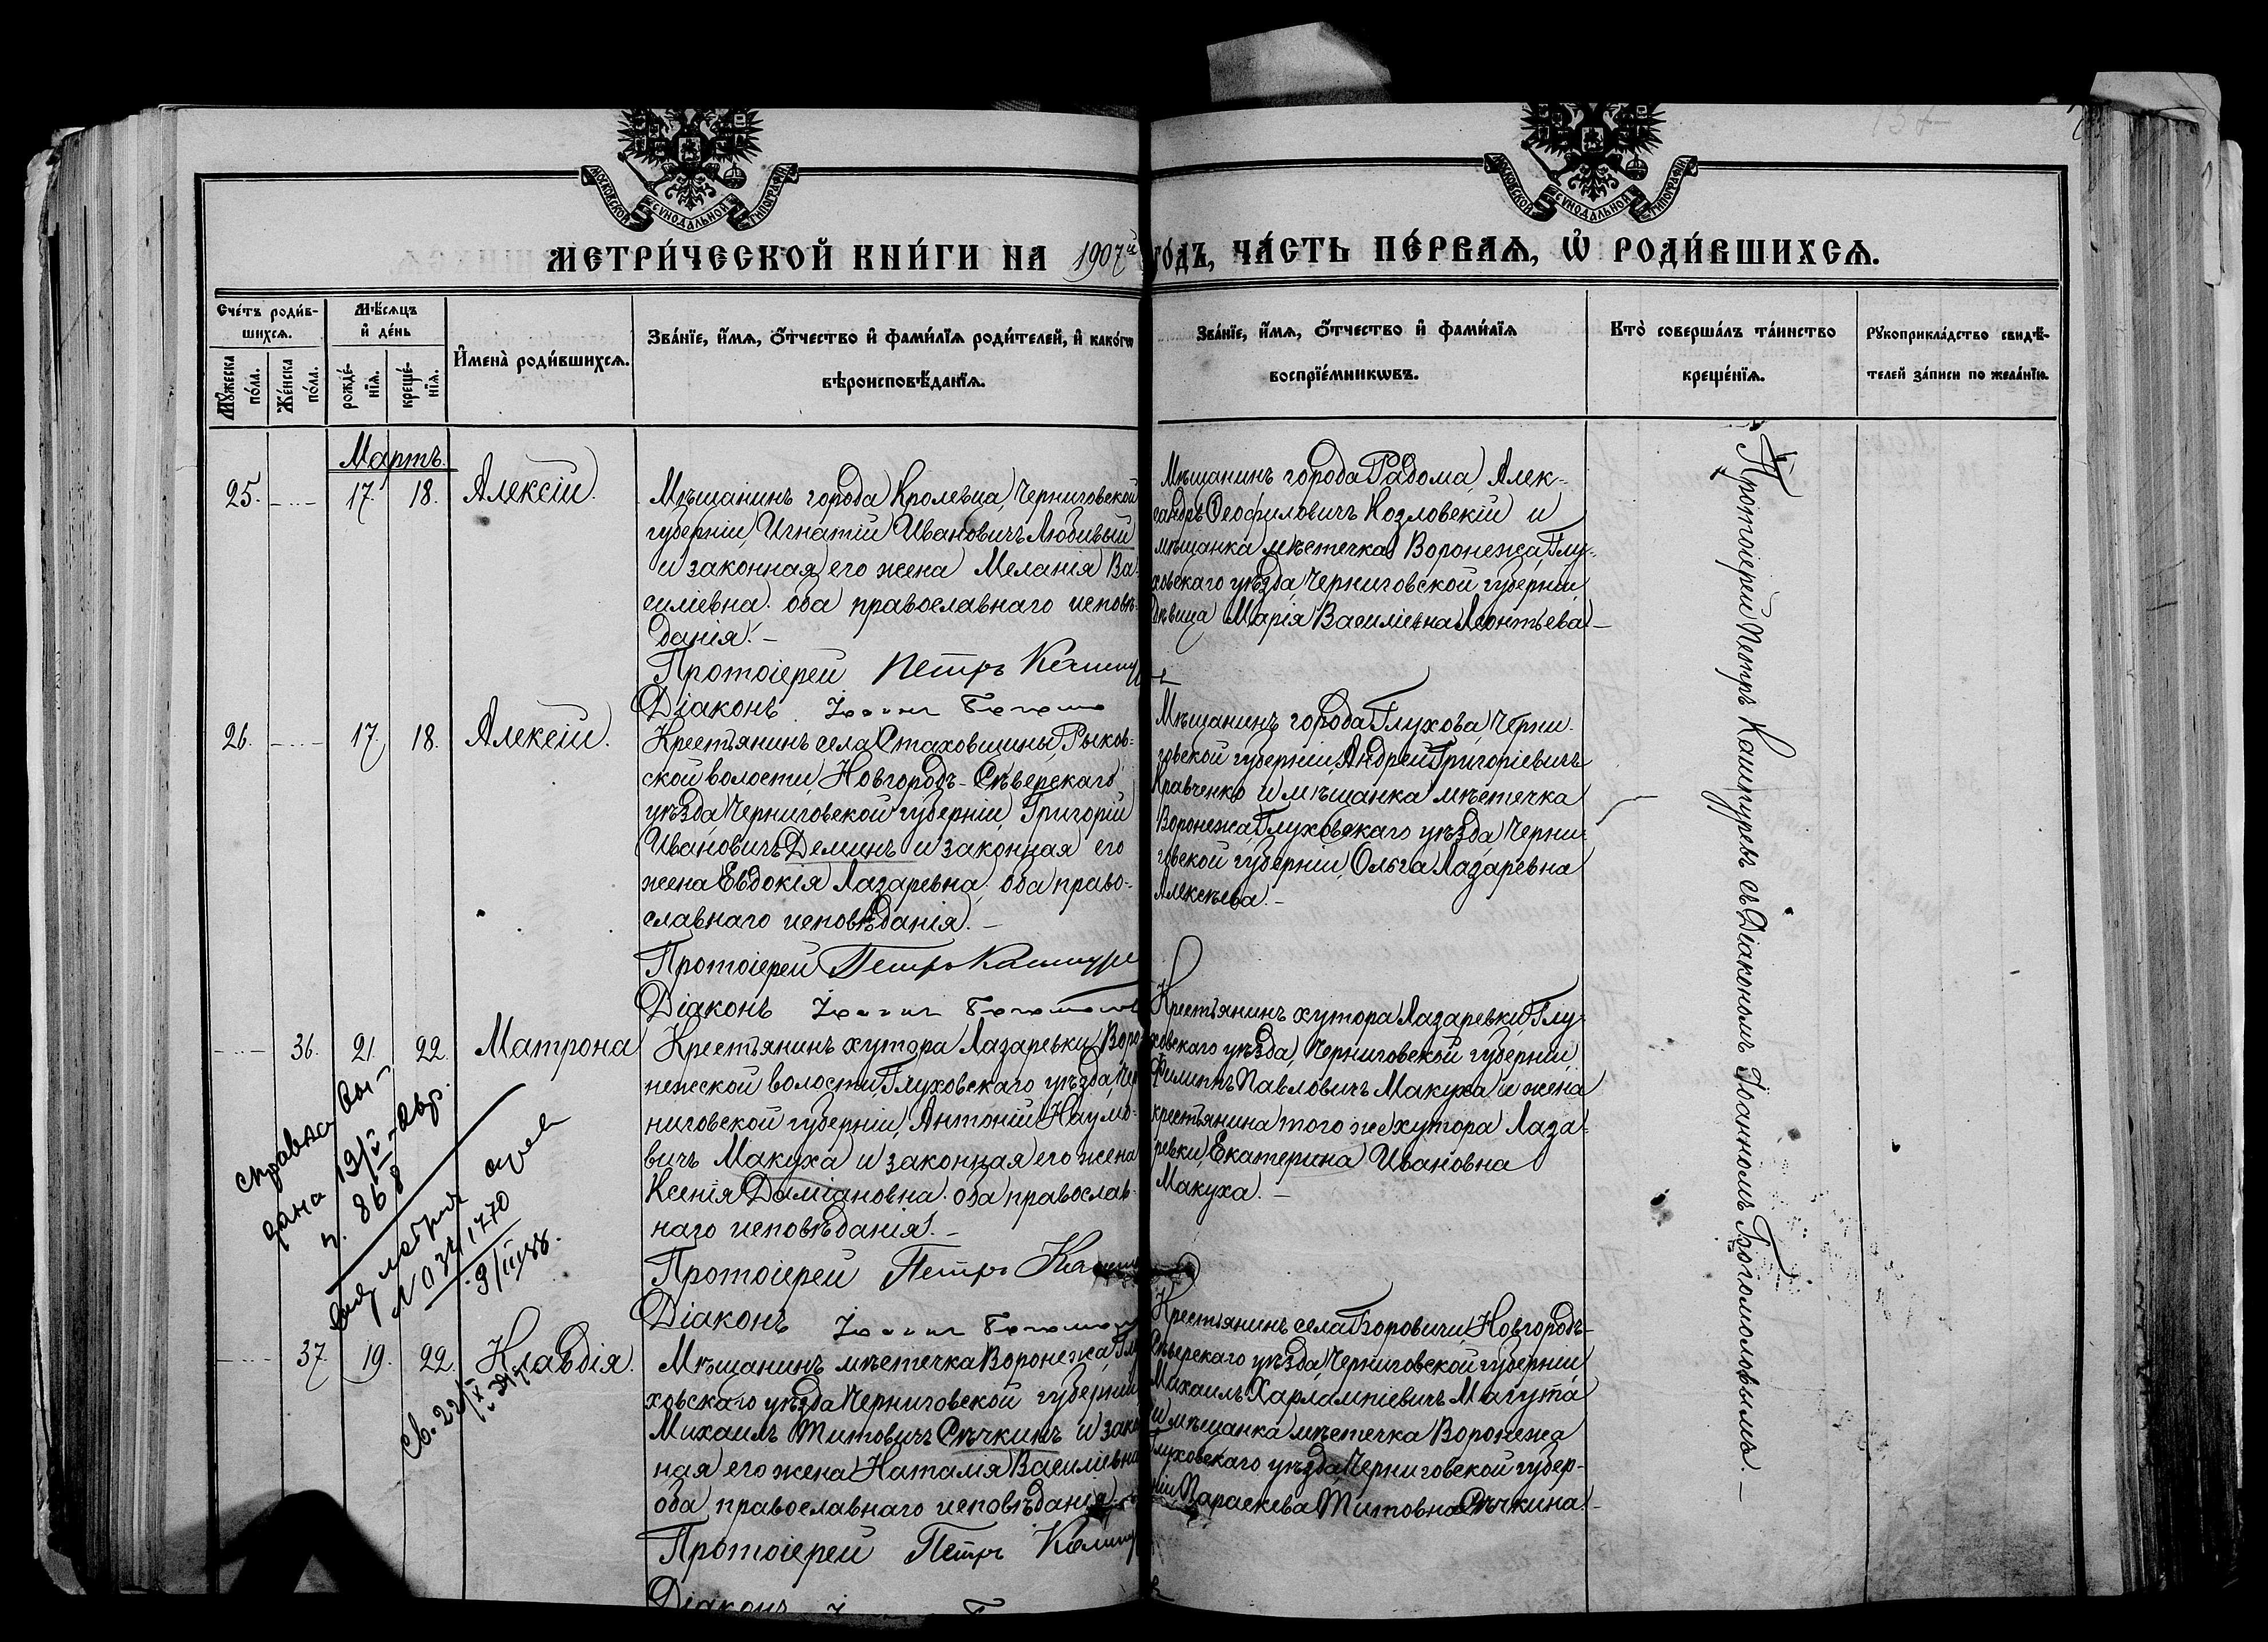 МОСКОВСКОЙ СѴНОДАЛЬНОЙ ТИПОГРАФІИ
МОСКОВСКОЙ СѴНОДАЛЬНОЙ ТИПОГРАФІИ
МЕТРИ́ЧЕСКОЙ КНИ́ГИ НА 1907й ГО́ДЪ, ЧА́СТЬ ПЕ́РВАѦ, Ѡ҆ РОДИ́ВШИХСѦ.
Сче́тъ роди́в-
шихсѧ.
Мꙋ́жеска по́ла.
Же́нска по́ла.
Мѣ́сѧцъ
и҆ де́нь
рожде́-
нїѧ.
креще́-
нїѧ.
И҆мена̀ роди́вшихсѧ.
Зва́нїе, и҆́мѧ, ѻ҆́тчество и҆ фами́лїѧ роди́телей, и҆ како́гѡ
вѣроисповѣ́данїѧ.
Зва́нїе, и҆́мѧ, ѻ҆́тчество и҆ фами́лїѧ
воспрїе́мникѡвъ.
Кто̀ соверша́лъ та́инство
креще́нїѧ.
Рꙋкоприкла́дство свидѣ́-
телей за́писи по жела́нїю.
Мартъ.
25.
17.
18.
Алексій.
Мѣщанинъ города Кролевца, Черниговской
губерніи, Игнатій Ивановичъ Любивый
и законная его жена Меланія Ва-
силіевна. оба православнаго исповѣ-
данія. –
Протоіерей Петръ Кашпуръ
Діаконъ Іоаннъ Богомоловъ
Мѣщанинъ города Радома, Алек-
сандръ Ѳеофиловичъ Козловскій и
мѣщанка мѣстечка Воронежа, Глу-
ховскаго уѣзда Черниговской губерніи
дѣвица Марія Василіевна Леонтьева –
26.
17.
18.
Алексій.
Крестьянинъ села Стаховщины, Рыков-
ской волости, Новгородъ-Сѣверскаго
уѣзда Черниговской губерніи, Григорій
Ивановичъ Деминъ и законная его
жена Евдокія Лазаревна. оба право-
славнаго исповѣданія. –
Протоіерей Петръ Кашпуръ
Діаконъ Іоаннъ Богомоловъ
Мѣщанинъ города Глухова, Черни-
говской губерніи, Андрей Григоріевичъ
Кравченко и мѣщанка мѣстечка
Воронежа, Глуховскаго уѣзда Черни-
говской губерніи, Ольга Лазаревна
Алексѣева. –
36.
21.
22.
Матрона
Крестьянинъ хутора Лазаревки, Воро-
нежской волости, Глуховскаго уѣзда, Чер-
ниговской губерніи, Антоній Наумо-
вичъ Макуха и законная его жена
Ксенія Даміановна. оба православ-
наго исповѣданія. –
Протоіерей Петръ Кашпуръ
Діаконъ Іоаннъ Богомоловъ
Крестьянинъ хутора Лазаревки, Глу-
ховскаго уѣзда, Черниговской губерніи,
Филиппъ Павловичъ Макуха и жена
крестьянина того же хутора Лаза-
ревки, Екатерина Ивановна
Макуха. –
справка
дана 19/V
ч. 868
37.
19.
22.
Клавдія.
Св. 22/IX
Мѣщанинъ мѣстечка Воронежа, Глу-
ховскаго уѣзда Черниговской губерніи
Михаилъ Титовичъ Сѣчкинъ и закон-
ная его жена Наталія Василіевна
оба православнаго исповѣданія
Протоіерей Петръ Кашпуръ
Діаконъ
Крестьянинъ села Боровичи, Новгородъ-
Сѣверскаго уѣзда Черниговской губерніи
Михаилъ Харлампіевичъ Магута
и мѣщанка мѣстечка Воронежа
Глуховскаго уѣзда, Черниговской губер-
ніи Параскева Титовна Сѣчкина –
Протоіерей Петръ Кашпуръ съ Діакономъ Іоанномъ Богомоловымъ. –